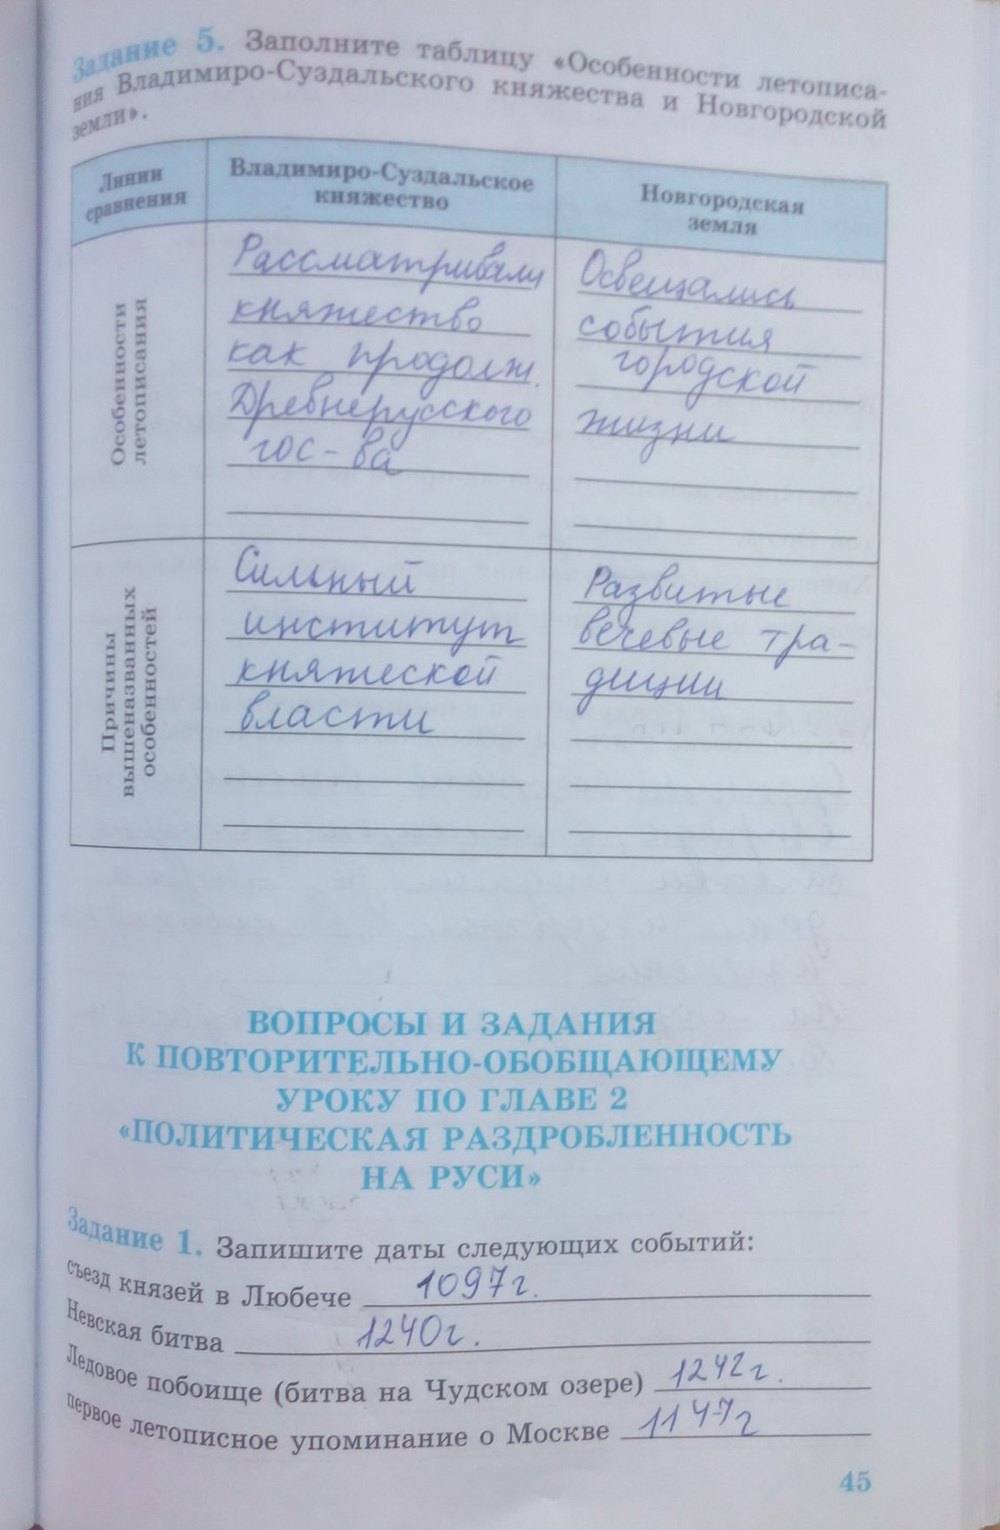 Задание 5. Заполните таблицу «Особенности летописа-
ния Владимиро-Суздальского княжества и Новгородской
земли».
Линии
сравнения
Владимиро-Суздальское
княжество
Новгородская
земля
Особенности
летописания
Рассматривали
княжество
как продолж.
Древнерусского
гос-ва
Освещались
события
городской
жизни
Причины
вышеназванных
особенностей
Сильный
институт
княжеской
власти
Развитые
вечевые тра-
диции
ВОПРОСЫ И ЗАДАНИЯ
К ПОВТОРИТЕЛЬНО-ОБОБЩАЮЩЕМУ
УРОКУ ПО ГЛАВЕ 2
«ПОЛИТИЧЕСКАЯ РАЗДРОБЛЕННОСТЬ
НА РУСИ»
Задание 1. Запишите даты следующих событий:
съезд князей в Любече 1097г.
Невская битва 1240г.
Ледовое побоище (битва на Чудском озере) 1242г.
первое летописное упоминание о Москве 1147г
45